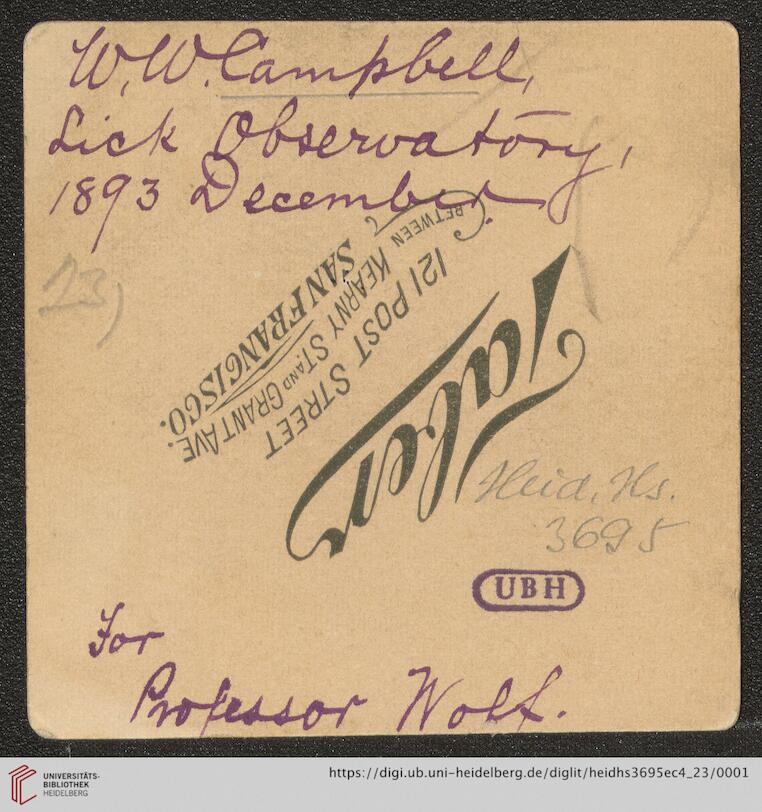 W. W. Campbell,
Lick Observatory,
1893 December.
23)
Taber
121 POST STREET
BETWEEN KEARNY ST. AND GRANT AVE.
SAN FRANCISCO.
Heid. Hs.
3695
UBH
For
Professor Wolf.
UNIVERSITÄTS-
BIBLIOTHEK
HEIDELBERG
https://digi.ub.uni-heidelberg.de/diglit/heidhs3695ec4_23/0001